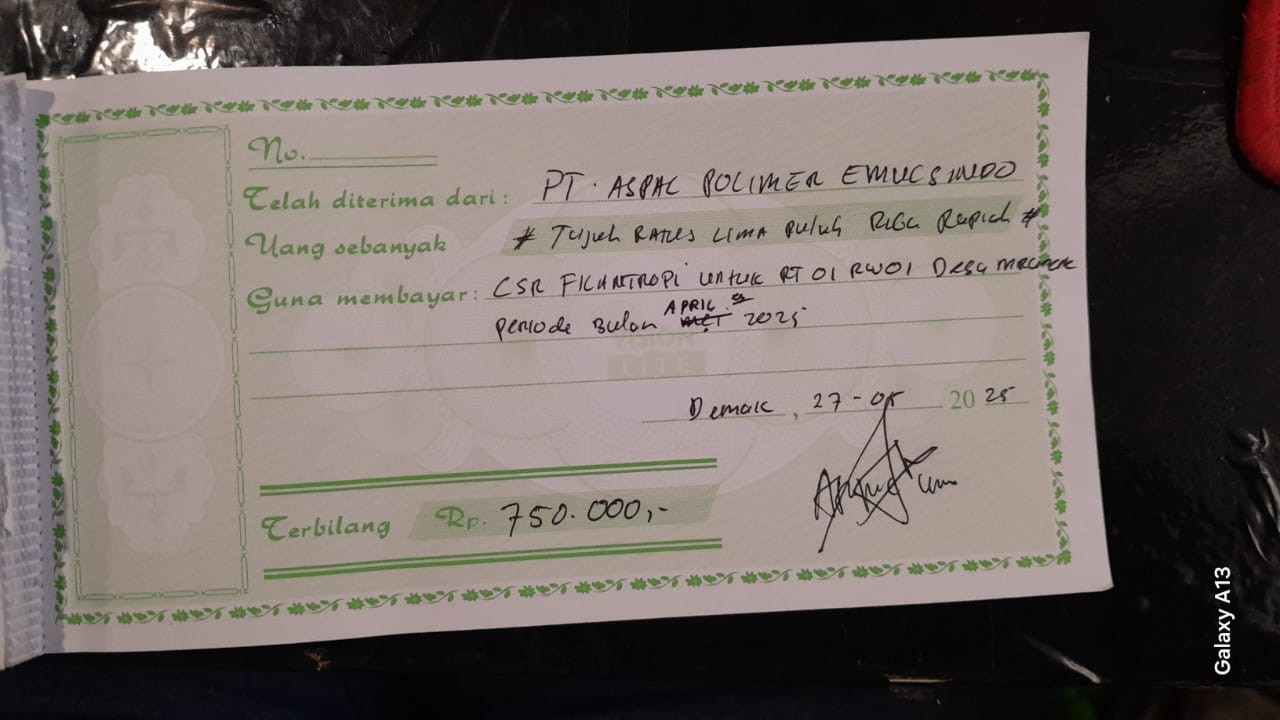 No.
Telah diterima dari : PT. ASPAL POLIMER EMULSINDO
Uang sebanyak # Tujuh RATUS LIMA PULUH RIBU Rupiah #
Guna membayar : CSR FILANTROPI UNTUK RT 01 RW 01 DESA
APRIL
periode Bulan 2025
VISION
LITE
Demak , 27 - 05 20 25
Terbilang Rp. 750.000,-
Galaxy A13